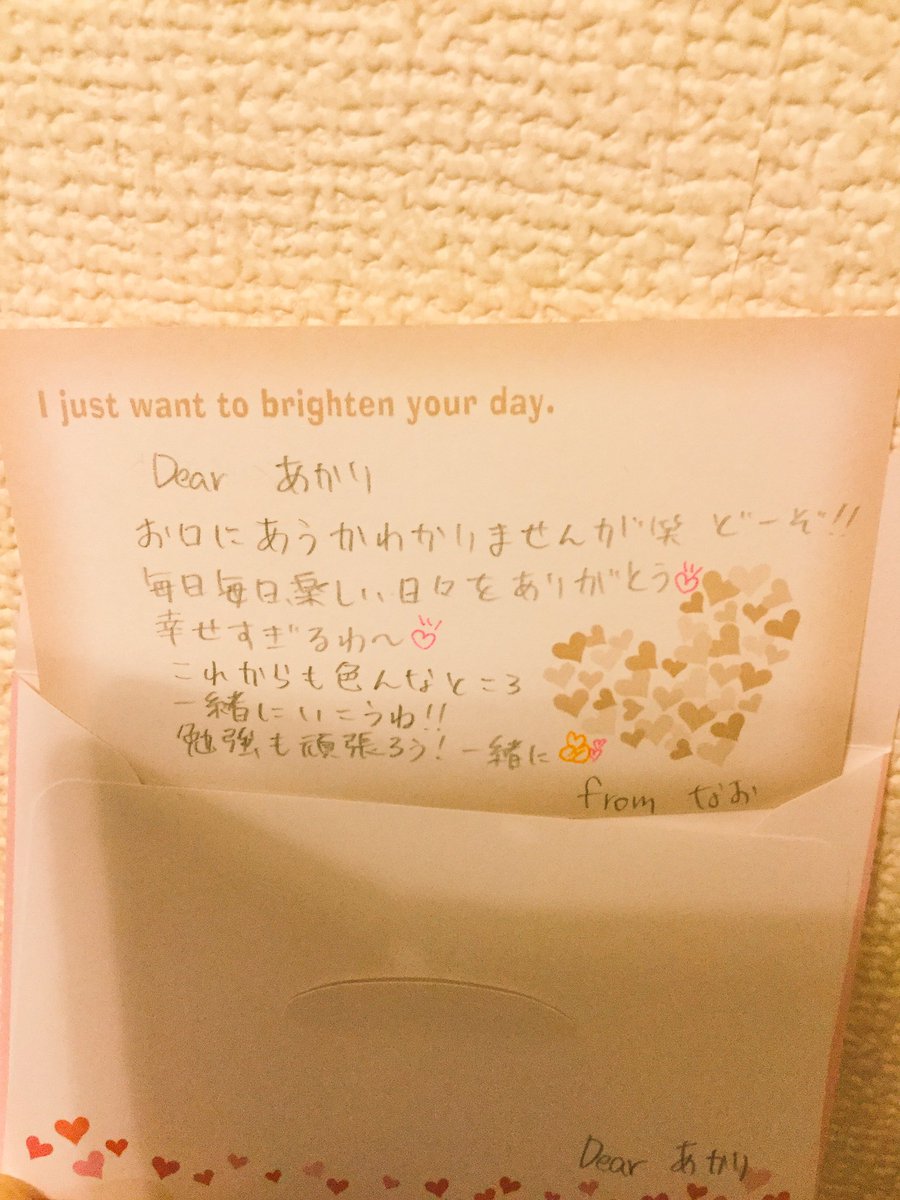 I just want to brighten your day.
Dear あかり
お口にあうかわかりませんが笑 どーぞ!!
毎日毎日、楽しい日々をありがとう
幸せすぎるわ〜
これからも色んなところ
一緒にいこうね!!
勉強も頑張ろう!一緒に
from なお
Dear あかり